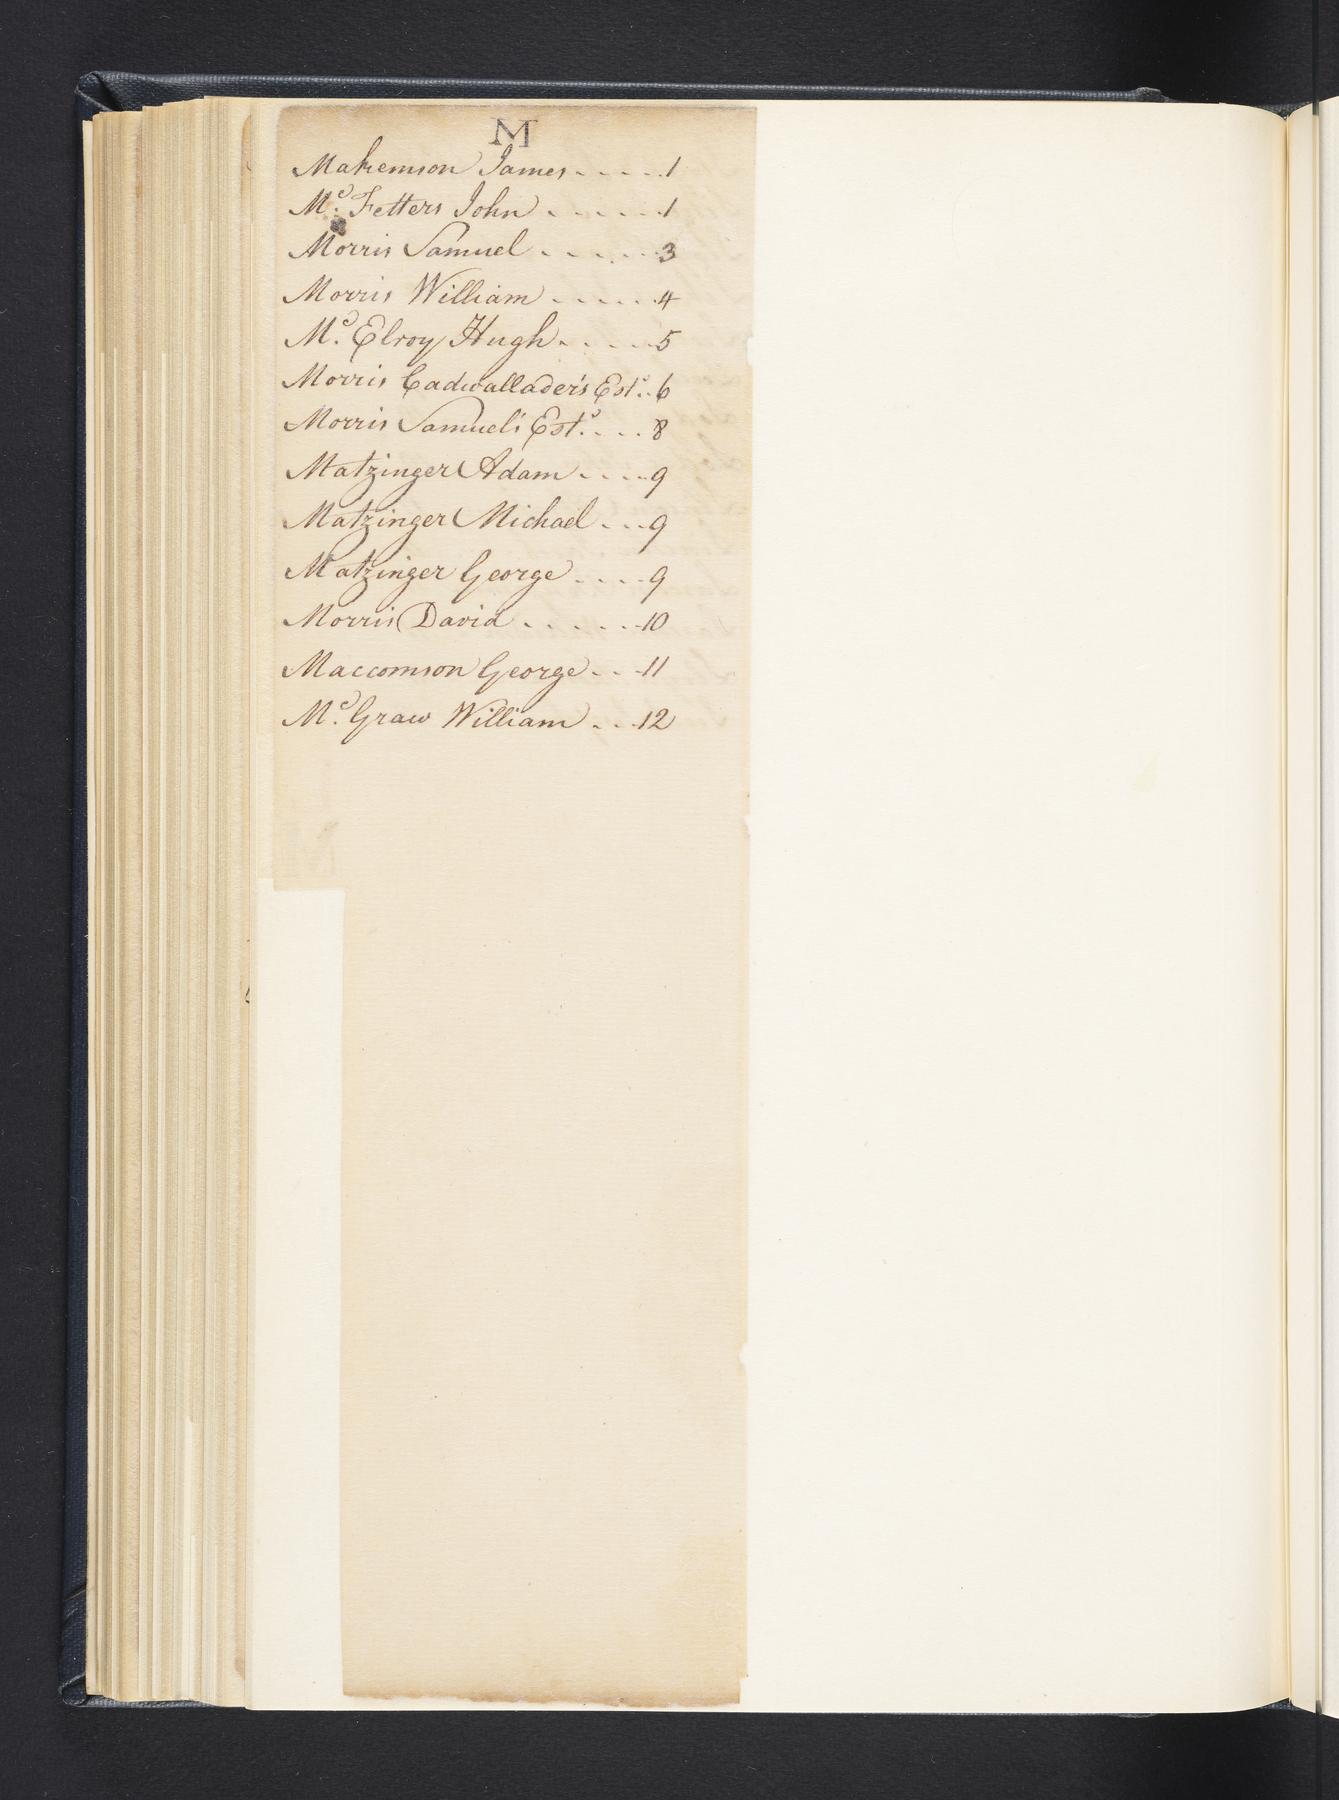 M
Makemson James - - - - - 1
Mc. Fetters John - - - - - 1
Morris Samuel - - - - - 3
Morris William - - - - - 4
Mc. Elroy Hugh - - - - - 5
Morris Cadwallader's Este. - - 6
Morris Samuel's Este. - - - 8
Matzinger Adam - - - - 9
Matzinger Michael - - - 9
Matzinger George - - - - 9
Morris David - - - - - - 10
Maccomson George - - - 11
Mc. Graw William - - - 12